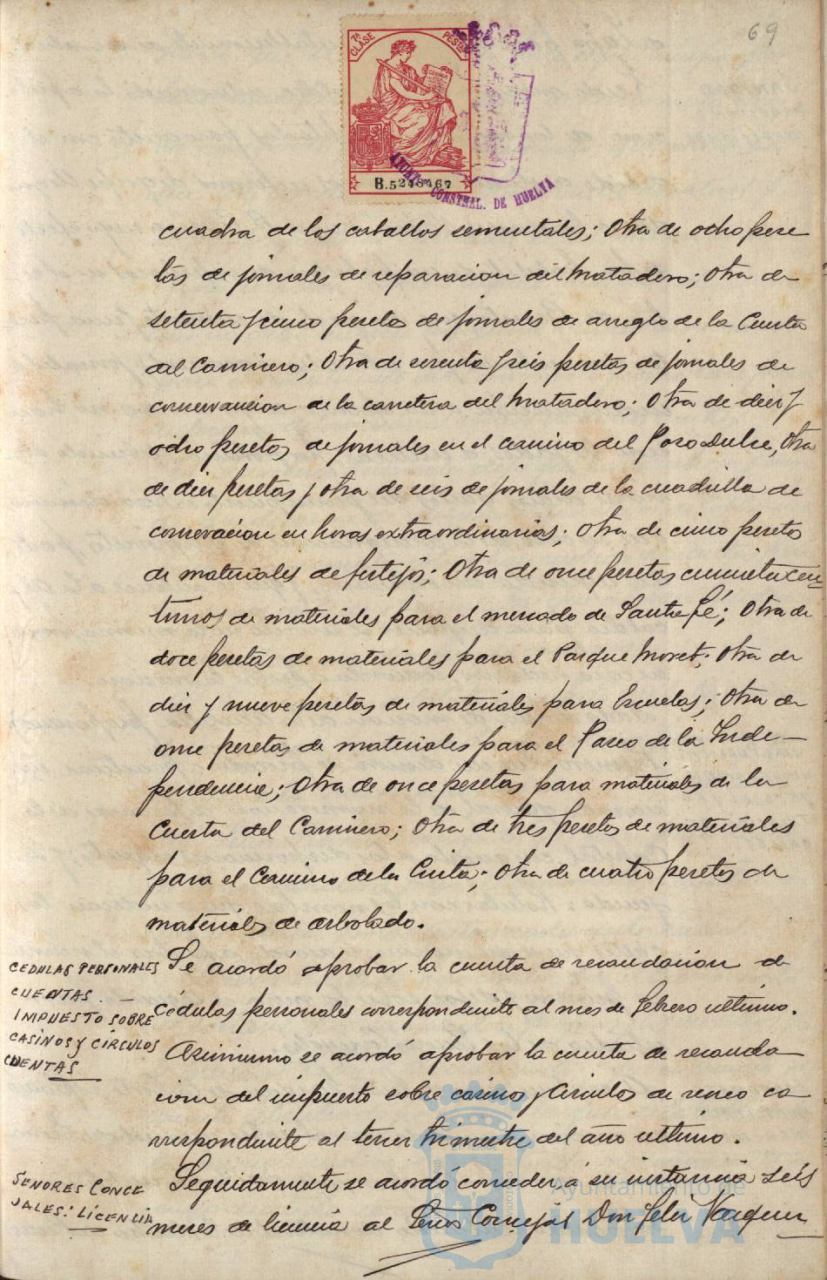 69
7ª CLASE PESETA
B.5248467
AYUNTº CONSTNAL. DE HUELVA
cuadra de los caballos sementales; Otra de ocho pese
tas de jornales de reparacion del Matadero; Otra de
setenta y cinco pesetas de jornales de arreglo de la Cuesta
del Caminero; Otra de sesenta y seis pesetas de jornales de
conservacion de la carretera del Matadero; Otra de diez y
ocho pesetas de jornales en el camino del Pozo Dulce, Otra
de diez pesetas y otra de seis de jornales de la cuadrilla de
conservacion en horas extraordinarias; Otra de cinco pesetas
de materiales de festejos; Otra de once pesetas cincuenta cen
timos de materiales para el mercado de Santa Fé; Otra de
doce pesetas de materiales para el Parque Moret; Otra de
diez y nueve pesetas de materiales para Escuelas; Otra de
once pesetas de materiales para el Paseo de la Inde-
pendencia; Otra de once pesetas para materiales de la
Cuesta del Caminero; Otra de tres pesetas de materiales
para el Camino de la Cinta; Otra de cuatro pesetas de
materiales de arbolado.
CEDULAS PERSONALES
CUENTAS. —
Se acordó aprobar la cuenta de recaudacion de
cédulas personales correspondiente al mes de Febrero ultimo.
IMPUESTO SOBRE
CASINOS Y CÍRCULOS
CUENTAS
Asimismo se acordó aprobar la cuenta de recauda-
cion del impuesto sobre casinos y Circulos de recreo co
rrespondiente al tercer trimestre del año ultimo.
SEÑORES CONCE
JALES: LICENCIA
Seguidamente se acordó conceder á su instancia seis
meses de licencia al Señor Concejal Don Felix Vazquez
Ayuntamiento de
HUELVA